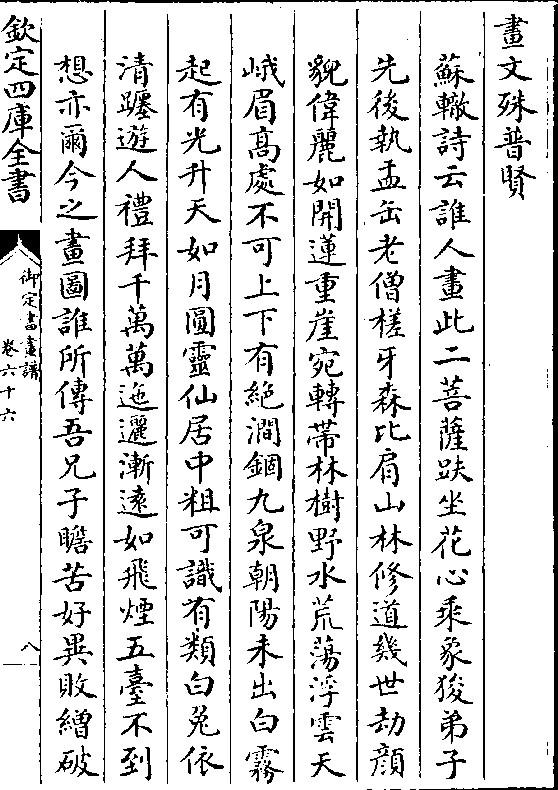 畫文殊普賢
蘇轍詩云誰人畫此二菩薩趺坐花心乘象狻弟子
先後執盂缶老僧槎牙森比肩山林修道幾世劫顔
貌偉麗如開蓮重崖宛轉帶林樹野水荒蕩浮雲天
峨眉髙處不可上下有絶澗錮九泉朝陽未出白霧
起有光升天如月圓靈仙居中粗可識有類白兔依
清躔遊人禮拜千萬萬迤邐漸遠如飛煙五臺不到
想亦爾今之畫圖誰所傳吾兄子瞻苦好異敗繒破
欽定四庫全書
御定書畫譜
卷六十六
八